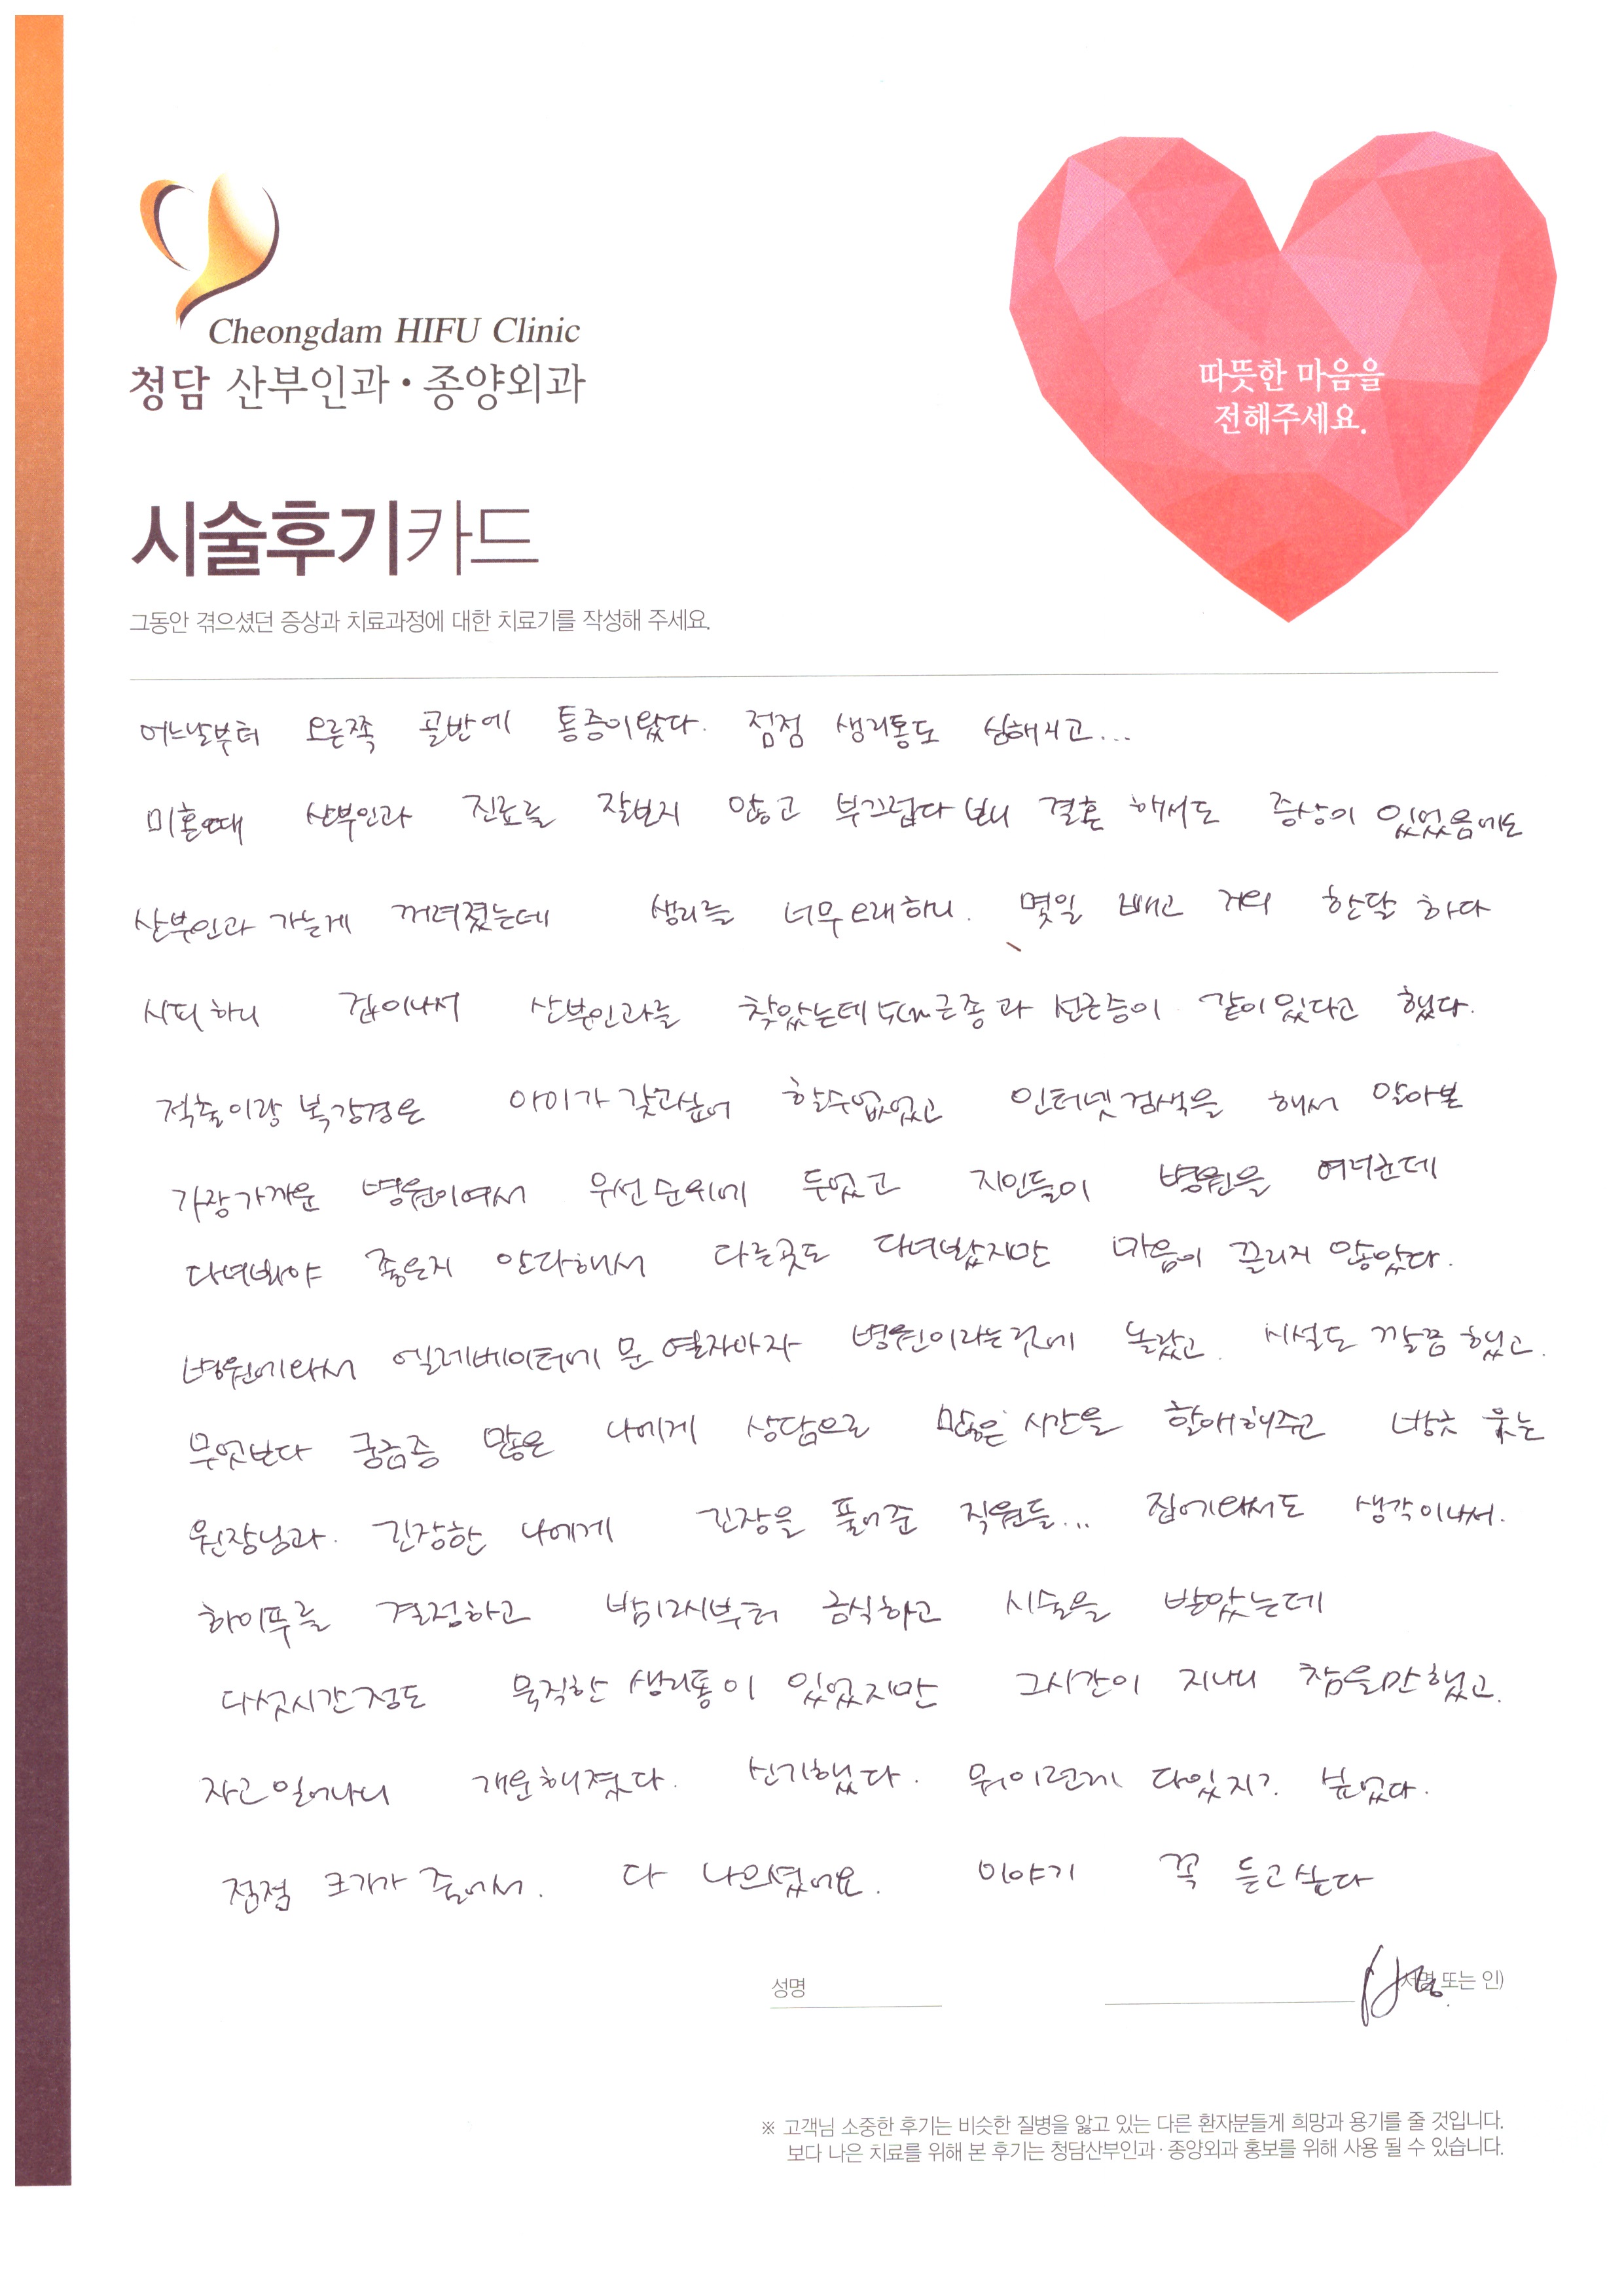 Cheongdam HIFU Clinic
청담 산부인과·종양외과
따뜻한 마음을
전해주세요.
시술후기카드
그동안 겪으셨던 증상과 치료과정에 대한 치료기를 작성해 주세요.
어느날부터 오른쪽 골반에 통증이왔다. 점점 생리통도 심해지고...
미혼때 산부인과 진료를 잘보지 않고 부끄럽다보니 결혼 해서도 증상이 있었음에도
산부인과 가는게 꺼려졌는데 생리를 너무오래하니. 몇일 빼고 거의 한달 하다
시피하니 겁이나서 산부인과를 찾았는데 5cm근종과 선근증이 같이있다고 했다.
적출이랑 복강경은 아이가 갖고싶어 할수없었고 인터넷검색을 해서 알아본
가장가까운 병원이여서 우선순위에 두었고 지인들이 병원을 여러군데
다녀봐야 좋은지 안다해서 다른곳도 다녀봤지만 마음이 끌리지 않았다.
병원에와서 엘레베이터에 문 열자마자 병원이라는것에 놀랐고. 시설도 깔끔했고.
무엇보다 궁금증 많은 나에게 상담으로 많은 시간을 할애해주고 방긋 웃는
원장님과. 긴장한 나에게 긴장을 풀어준 직원들... 집에와서도 생각이나서.
하이푸를 결정하고 밤12시부터 금식하고 시술을 받았는데
다섯시간정도 묵직한 생리통이 있었지만 그시간이 지나니 참을만했고.
자고일어나니 개운해졌다. 신기했다. 뭐이런게 다있지? 싶었다.
점점 크기가 줄어서. 다 나으셨어요. 이야기 꼭 듣고싶다
성명 또는 인)
※ 고객님 소중한 후기는 비슷한 질병을 앓고 있는 다른 환자분들게 희망과 용기를 줄 것입니다.
보다 나은 치료를 위해 본 후기는 청담산부인과·종양외과 홍보를 위해 사용 될 수 있습니다.